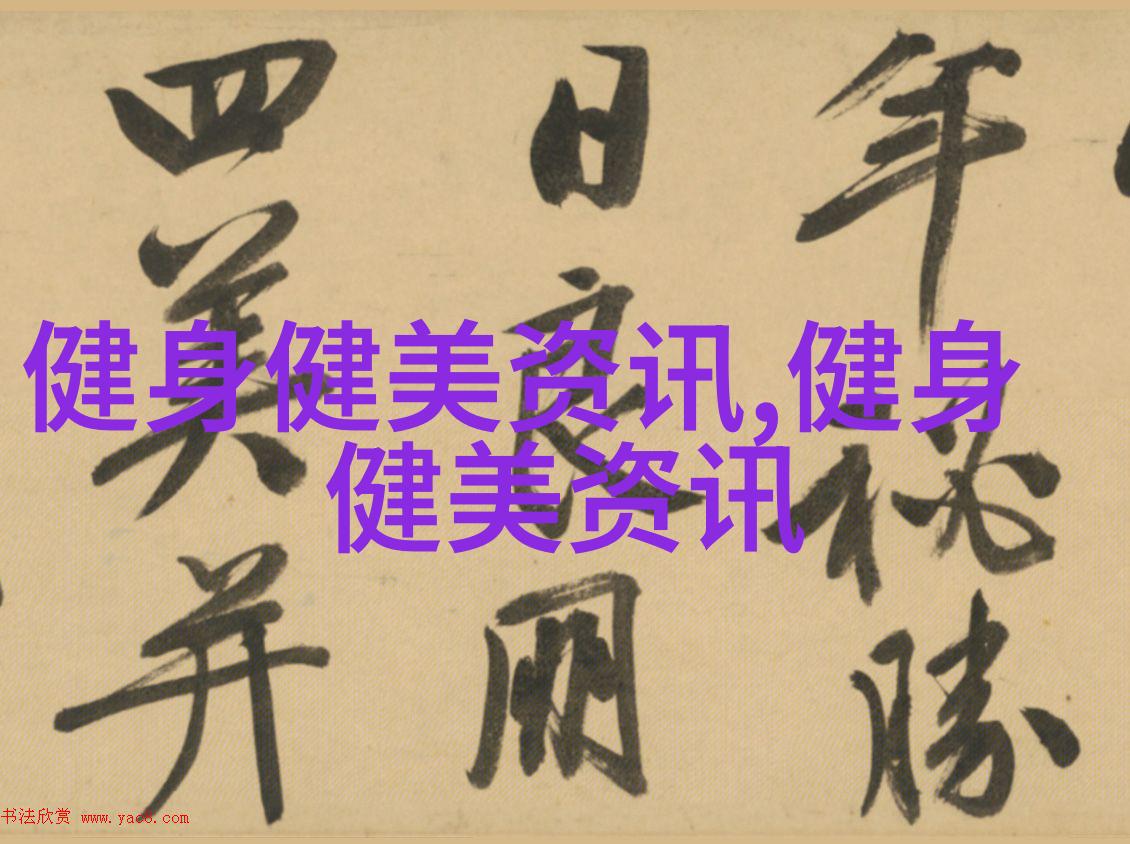 年秘勝
日良朋
四美并
健身健美资讯,健身
健美资讯
书法欣赏 www.yac8.com